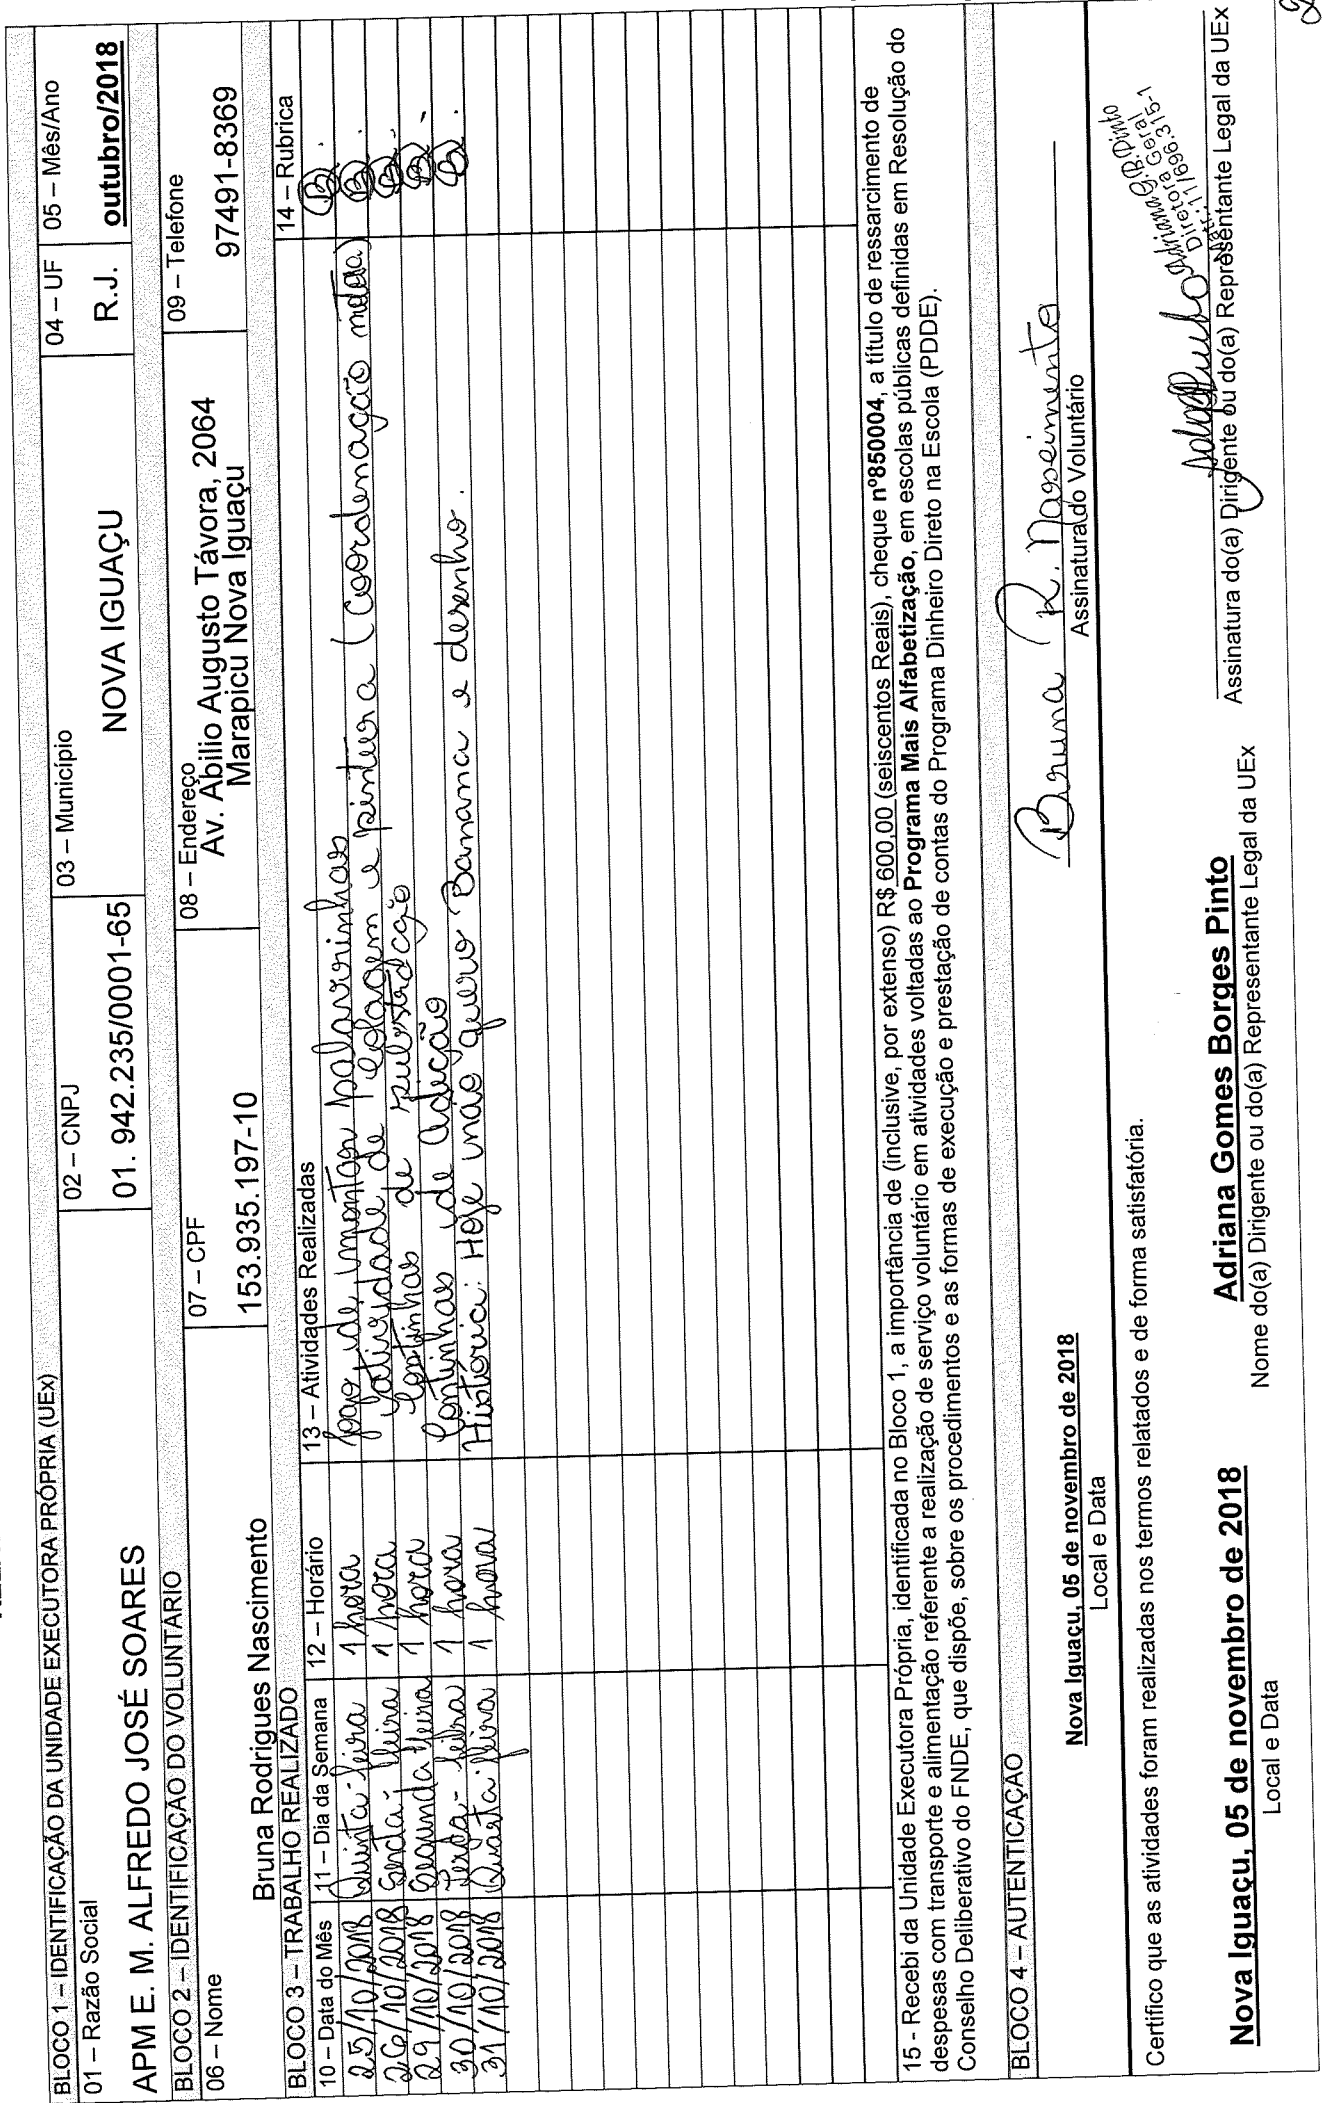 BLOCO 1 – IDENTIFICAÇÃO DA UNIDADE EXECUTORA PRÓPRIA (UEx)
01 – Razão Social
APM E. M. ALFREDO JOSÉ SOARES
02 – CNPJ
01. 942.235/0001-65
03 – Município
NOVA IGUAÇU
04 – UF
R.J.
05 – Mês/Ano
outubro/2018
BLOCO 2 – IDENTIFICAÇÃO DO VOLUNTÁRIO
06 – Nome
Bruna Rodrigues Nascimento
07 – CPF
153.935.197-10
08 – Endereço
Av. Abilio Augusto Távora, 2064
Marapicu Nova Iguaçu
09 – Telefone
97491-8369
BLOCO 3 – TRABALHO REALIZADO
10 – Data do Mês 11 – Dia da Semana 12 – Horário 13 – Atividades Realizadas 14 – Rubrica
25/10/2018 Quinta-feira 1 hora Jogo de montar palavrinhas B.
26/10/2018 Sexta-feira 1 hora Atividade de colagem e pintura (Coordenação motora) B.
29/10/2018 Segunda feira 1 hora Continhas de subtração B.
30/10/2018 Terça-feira 1 hora Continhas de Adição B.
31/10/2018 Quarta feira 1 hora História: Hoje não quero Banana e desenho. B.
15 - Recebi da Unidade Executora Própria, identificada no Bloco 1, a importância de (inclusive, por extenso) R$ 600,00 (seiscentos Reais), cheque nº850004, a título de ressarcimento de
despesas com transporte e alimentação referente a realização de serviço voluntário em atividades voltadas ao Programa Mais Alfabetização, em escolas públicas definidas em Resolução do
Conselho Deliberativo do FNDE, que dispõe, sobre os procedimentos e as formas de execução e prestação de contas do Programa Dinheiro Direto na Escola (PDDE).
BLOCO 4 – AUTENTICAÇÃO
Nova Iguaçu, 05 de novembro de 2018
Local e Data
Bruna R. Nascimento
Assinatura do Voluntário
Certifico que as atividades foram realizadas nos termos relatados e de forma satisfatória.
Nova Iguaçu, 05 de novembro de 2018
Local e Data
Adriana Gomes Borges Pinto
Nome do(a) Dirigente ou do(a) Representante Legal da UEx
Adriana G. B. Pinto
Diretora Geral
Matr.: 11/696.315-1
Assinatura do(a) Dirigente ou do(a) Representante Legal da UEx